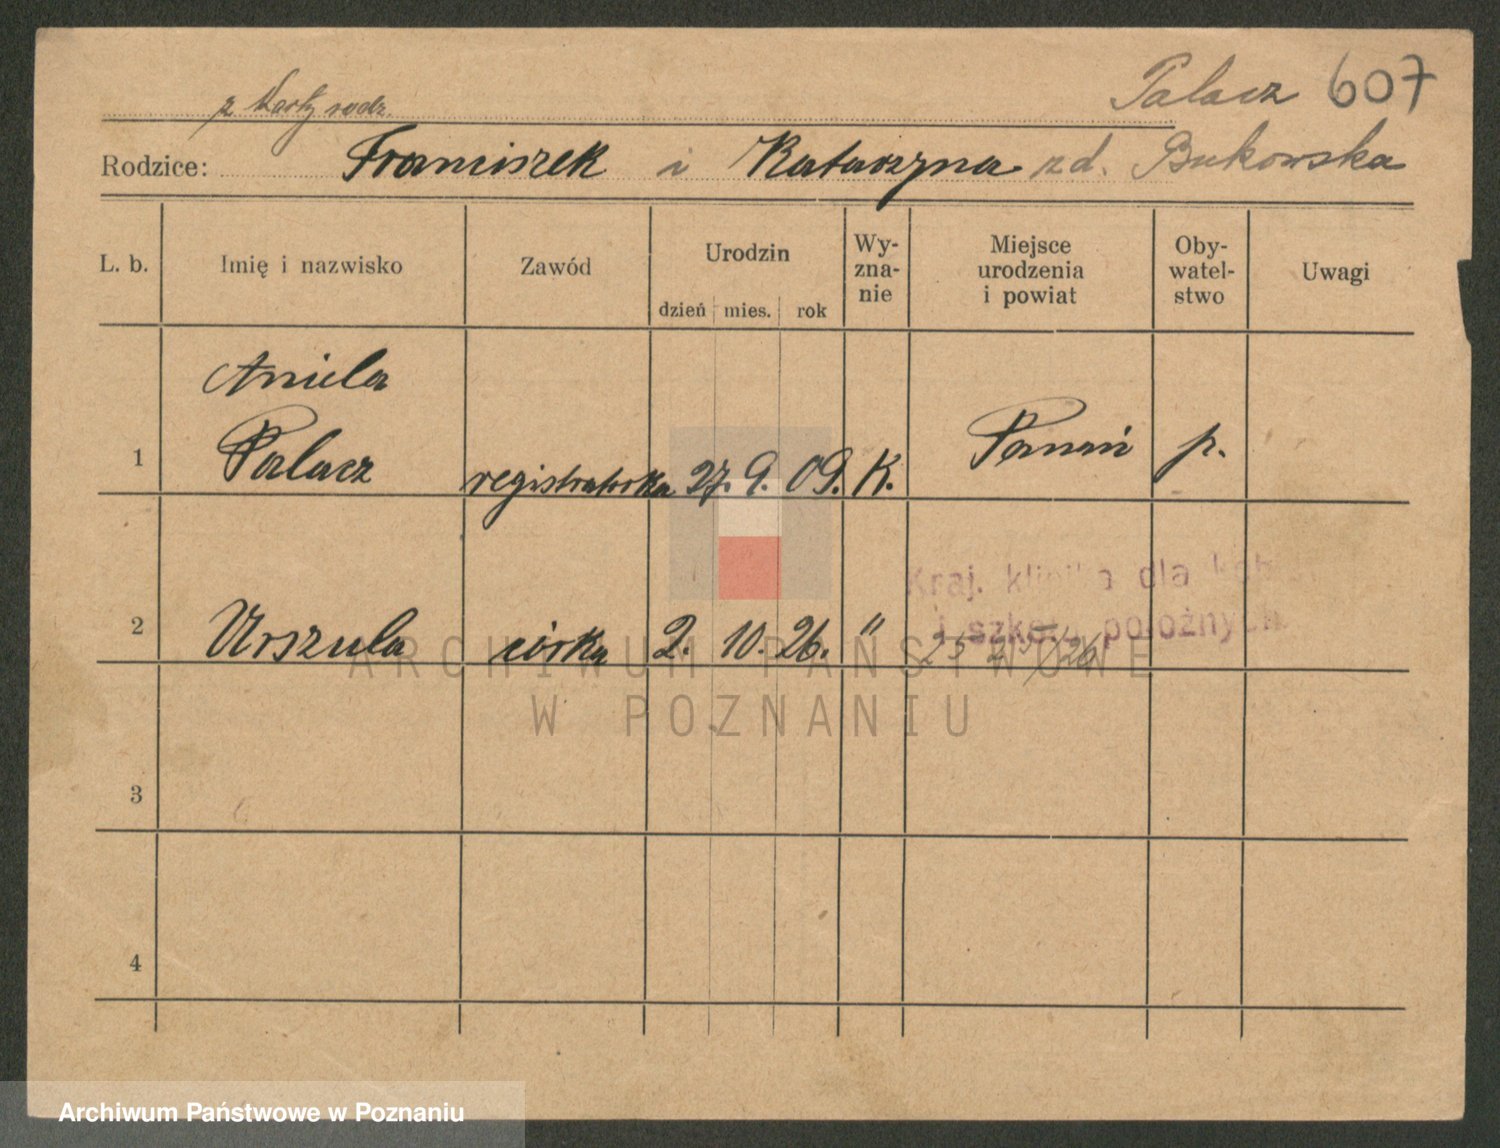 z karty rodz.
Palacz 607
Rodzice: Franciszek i Katarzyna zd. Bukowska
L. b. Imię i nazwisko Zawód Urodzin dzień mies. rok Wy-zna-nie Miejsce urodzenia i powiat Oby-watel-stwo Uwagi
Aniela
1 Palacz registratorka 27. 9. 09. K. Poznań p.
Kraj. klinika dla kob
i szkoła położnych
2 Urszula córka 2. 10. 26. "
3
4
ARCHIWUM PAŃSTWOWE
W POZNANIU
Archiwum Państwowe w Poznaniu